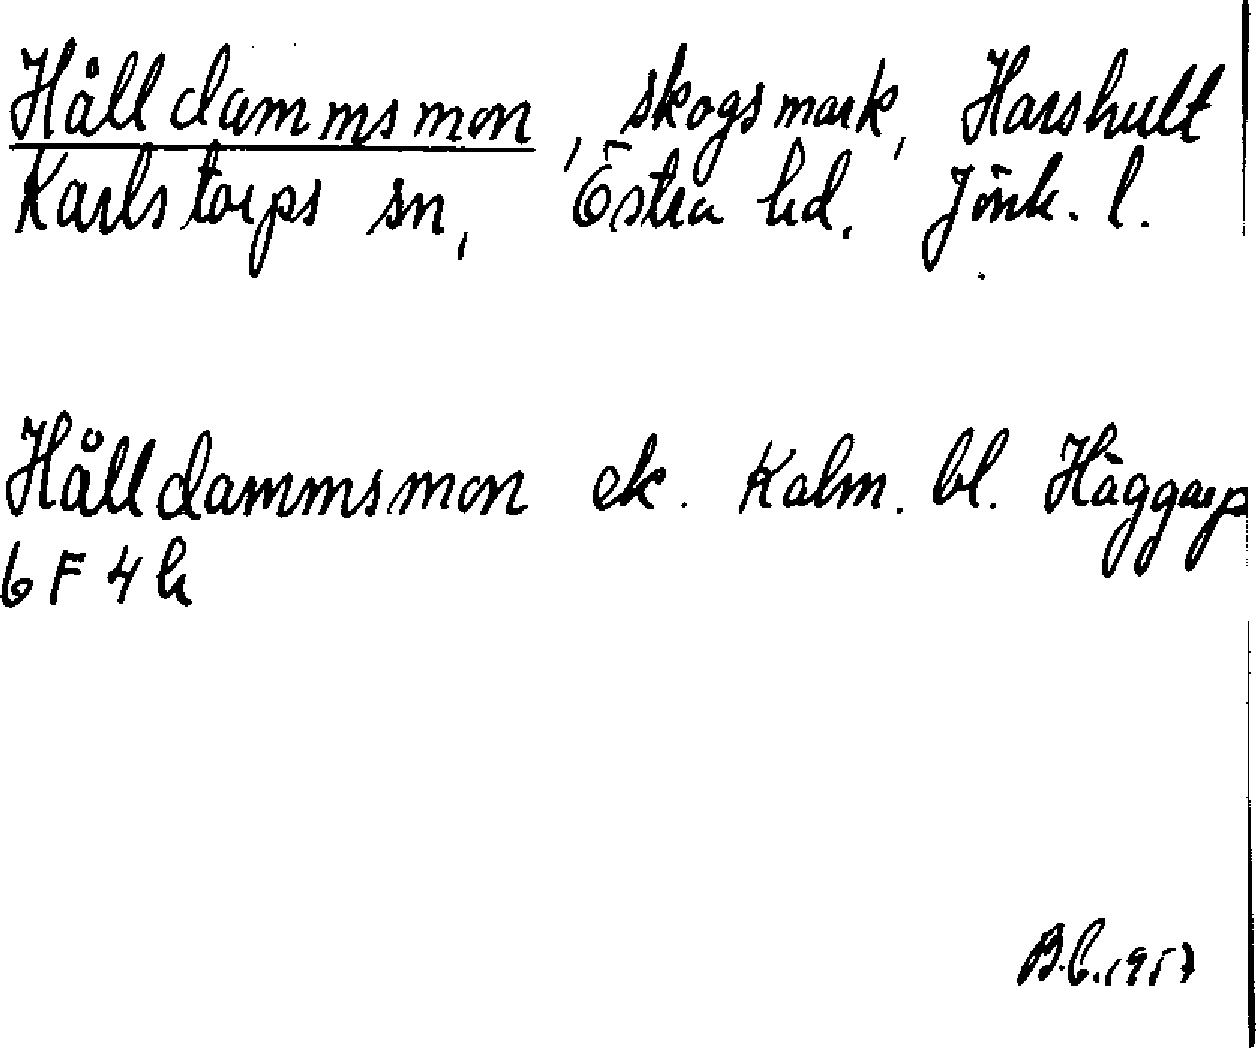 Hålldammsmon, skogsmark, Harshult
Karlstorps sn, Östra hd. Jönk. l.
Hålldammsmon ek. Kalm. bl. Häggarp
6 F 4 h
B.C. 1957